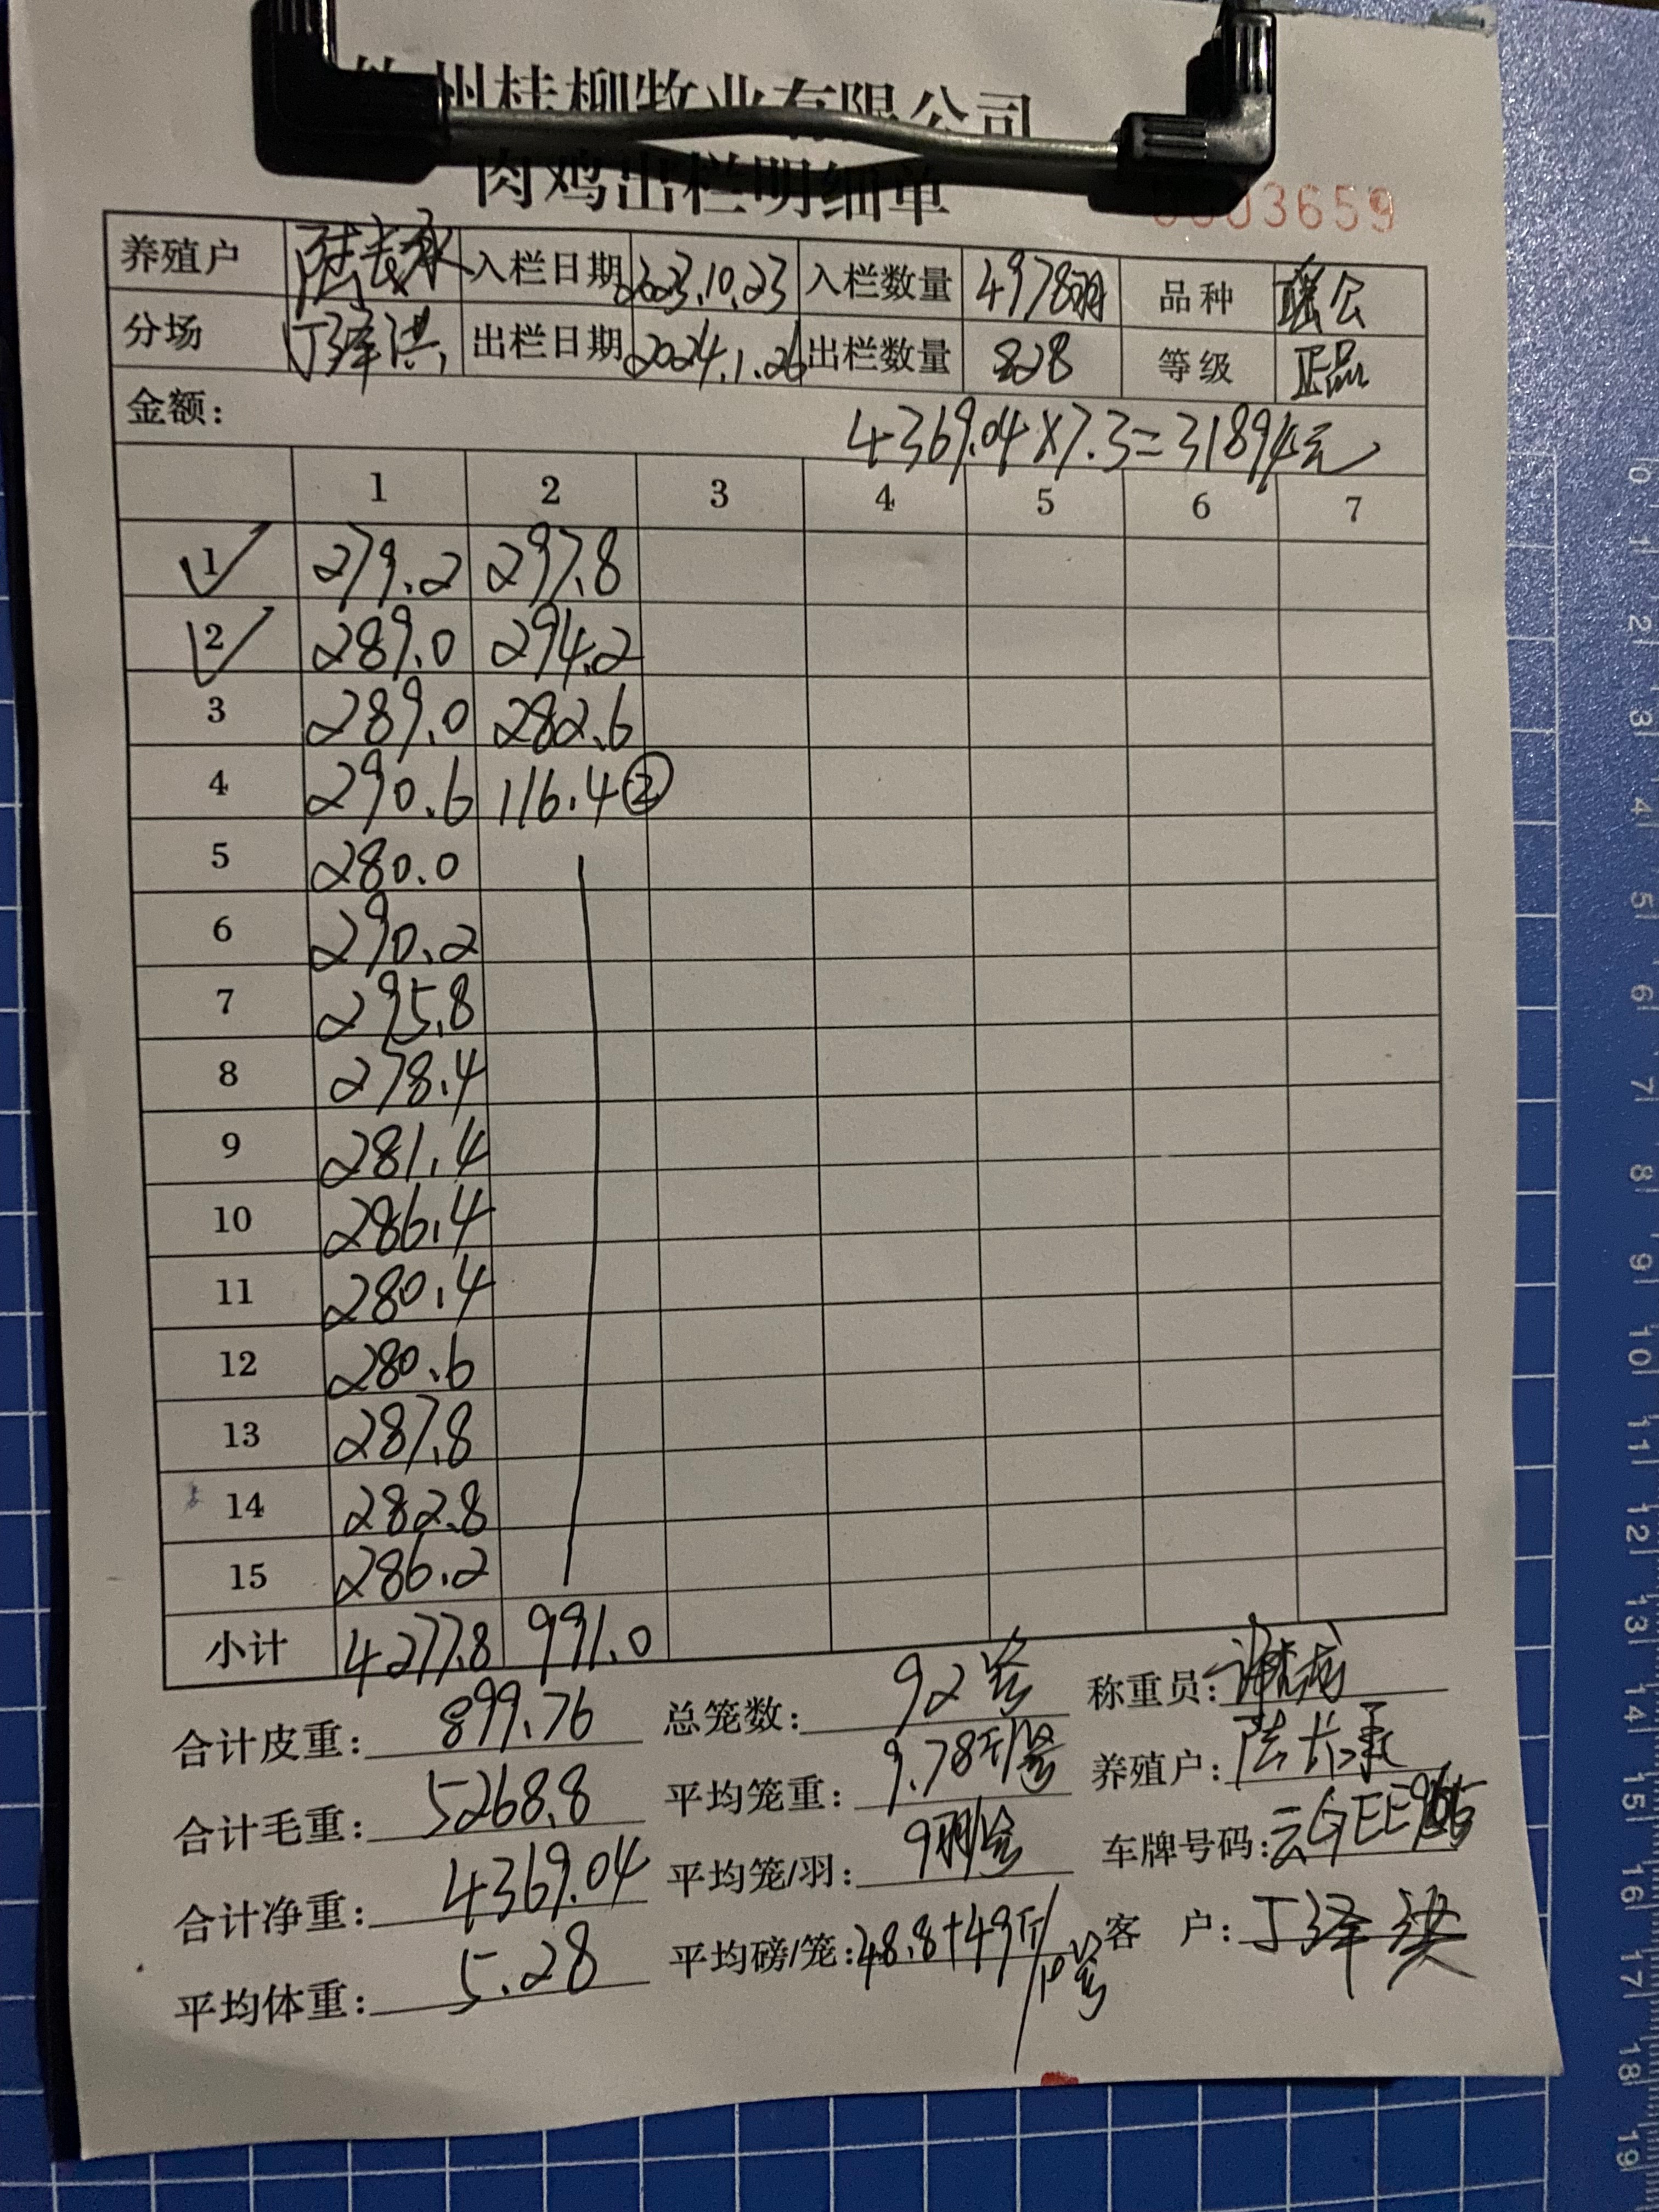 州桂柳牧业有限公司
肉鸡出栏明细单
03659
养殖户 陆长承 入栏日期 2023.10.23 入栏数量 4978羽 品种 瑶公
分场 丁泽洪 出栏日期 2024.1.26 出栏数量 828 等级 正品
金额: 4369.04×7.3=31894元
1 2 3 4 5 6 7
1 279.2 297.8
2 289.0 294.2
3 289.0 282.6
4 290.6 116.4②
5 280.0
6 290.2
7 295.8
8 278.4
9 281.4
10 286.4
11 280.4
12 280.6
13 287.8
14 282.8
15 286.2
小计 4277.8 991.0
合计皮重: 899.76 总笼数: 92笼 称重员:
合计毛重: 5268.8 平均笼重: 9.78斤/笼 养殖户: 陆长承
合计净重: 4369.04 平均笼/羽: 9羽/笼 车牌号码: 云GEE
平均体重: 5.28 平均磅/笼: 48.8+49斤/10笼 客 户: 丁泽洪
0 1 2 3 4 5 6 7 8 9 10 11 12 13 14 15 16 17 18 19